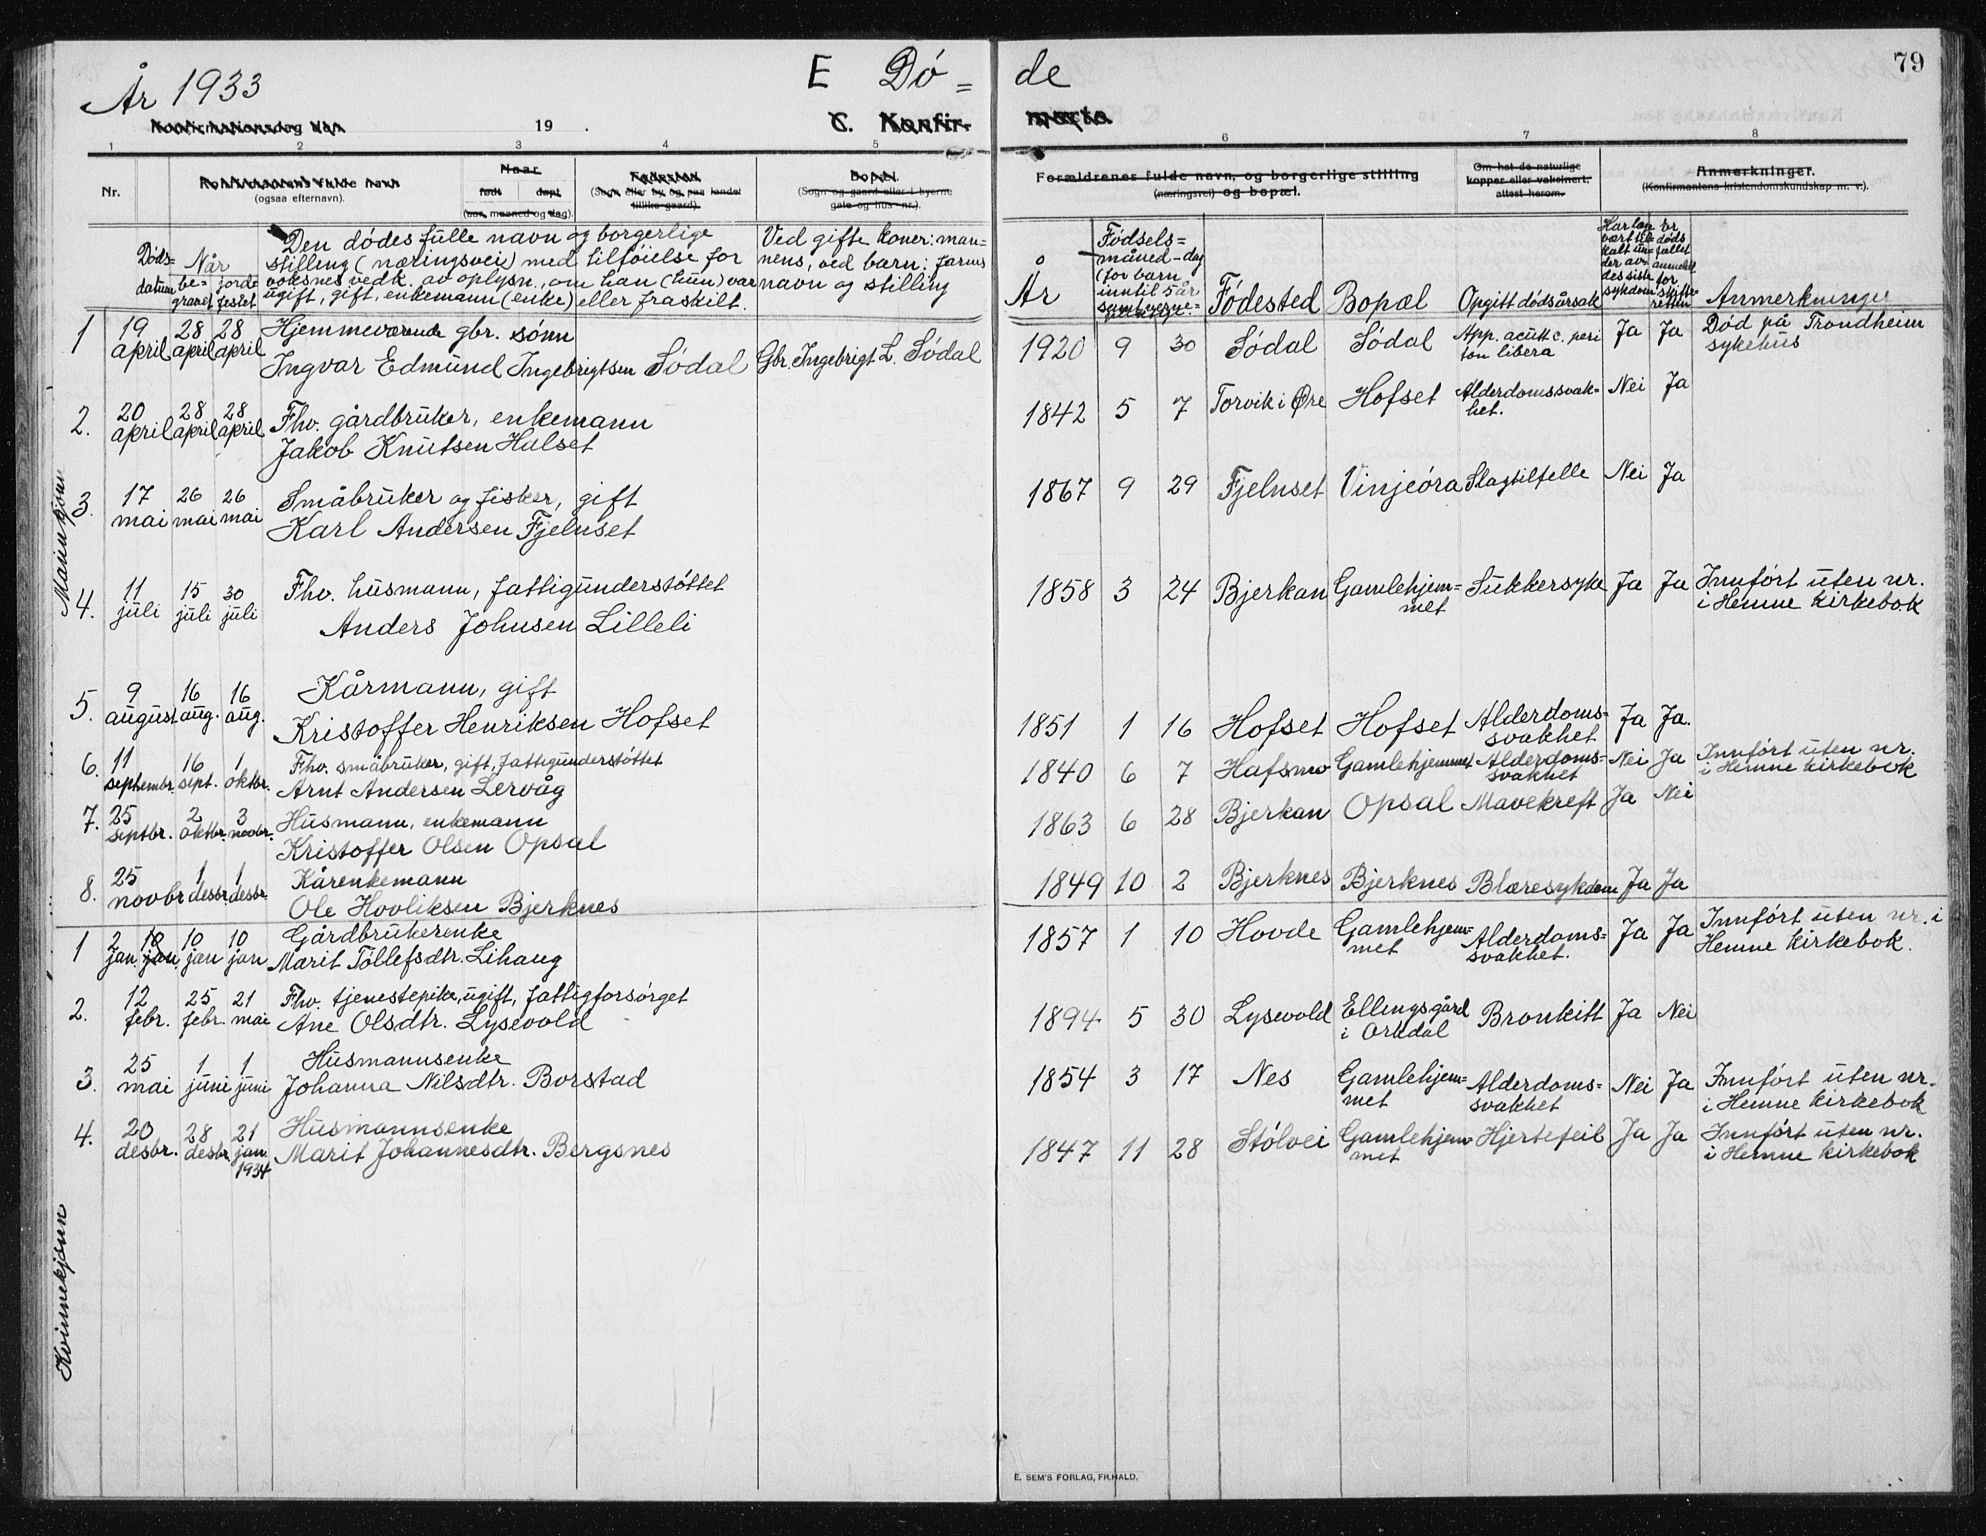 År 1933
E Dø=
de
79
Konfirmationsdag den 19 .
C. Konfir-
merte.
1 2 3 4 5 6 7 8
Nr.
Konfirmantens fulde navn
(ogsaa efternavn).
Naar
født døpt
(aar, maaned og dag).
Fødested
(Sogn eller by, og paa landet
tillike gaard).
Bopæl
(Sogn og gaard eller i byerne
gate og hus-nr.).
Forældrenes fulde navn, og borgerlige stilling
(næringsvei) og bopæl.
Om hat de naturlige
kopper eller vaksinert,
attest herom.
Anmerkninger.
(Konfirmantens kristendomskundskap m. v.).
Døds-
datum
Når
be-
gravet
jorde
festet
Den dødes fulle navn og borgerlige
stilling (næringsvei) med tilføielse for
voksnes vedk. av oplysn., om han (hun) var
ugift, gift, enkemann (enke) eller fraskilt.
Ved gifte koner: man-
nens, ved barn: farens
navn og stilling
År
Fødsels=
måned-dag
(for barn
inntil 5 år
Fødested Bopæl Opgitt dødsårsak
Har læge
vært til-
kalt un-
der av-
des siste
sykdom
Er
døds
fallet
anmeldt
for
skifte-
retten
Anmerkninger
Mannkjønn
1 19 april 28 april 28 april Hjemmeværende gbr. sønn
Ingvar Edmund Ingebrigtsen Sødal Gbr. Ingebrigt L. Sødal 1920 9 30 Sødal Sødal App. acutt c. peri
ton libera Ja Ja Død på Trondheim
sykehus
2. 20 april 28 april 28 april Fhv. gårdbruker, enkemann
Jakob Knutsen Halset 1842 5 7 Torvik i Øre Hofset Alderdomssvak-
het. Nei Ja
3. 17 mai 26 mai 26 mai Småbruker og fisker, gift
Karl Andersen Fjelnset 1867 9 29 Fjelnset Vinjeøra Slagtilfelle Nei Ja
4. 11 juli 15 juli 30 juli Fhv. husmann, fattigunderstøttet
Anders Johnsen Lilleli 1858 3 24 Bjerkan Gamlehjem=
met Sukkersyke Ja Ja Innført uten nr.
i Hemne kirkebok
5. 9 august 16 aug. 16 aug. Kårmann, gift
Kristoffer Henriksen Hofset 1851 1 16 Hofset Hofset Alderdoms=
svakhet Ja Ja.
6. 11 septembr. 16 sept. 1 oktbr. Fhv. småbruker, gift, fattigunderstøttet
Arnt Andersen Lervåg 1840 6 7 Hafsmo Gamlehjemmet Alderdoms=
svakhet Nei Ja Innført uten nr.
i Hemne kirkebok
7. 25 septbr. 2 oktbr. 3 novbr. Husmann, enkemann
Kristoffer Olsen Opsal 1863 6 28 Bjerkan Opsal Mavekreft Ja Nei
8. 25 novbr 1 desbr. 1 desbr. Kårenkemann
Ole Hovliksen Bjerknes 1849 10 2 Bjerknes Bjerknes Blæresykdom Ja Ja
Kvinnekjønn
1 2 jan. 10 jan. 10 jan 10 jan Gårdbrukerenke
Marit Tollefsdtr. Lihaug 1857 1 10 Hovde Gamlehjem=
met Alderdoms=
svakhet. Ja Ja Innført uten nr. i
Hemne kirkebok.
2. 12 febr. 25 febr. 21 mai Fhv. tjenestepike, ugift, fattigforsørget
Ane Olsdtr. Lysevold 1894 5 30 Lysevold Ellingsgård
i Orkdal Bronkitt Ja Nei
3. 25 mai 1 juni 1 juni Husmannsenke
Johanna Nilsdtr. Borstad 1854 3 17 Nes Gamlehjem=
met Alderdoms=
svakhet Nei Ja Innført uten nr.
i Hemne kirkebok
4. 20 desbr. 28 desbr. 21 jan. 1934 Husmannsenke
Marit Johannesdtr. Bergsnes 1847 11 28 Stølvei Gamlehjem
met Hjertefeil Ja Ja Innført uten nr.
i Hemne kirkebok
E. SEM'S FORLAG, FR.HALD.